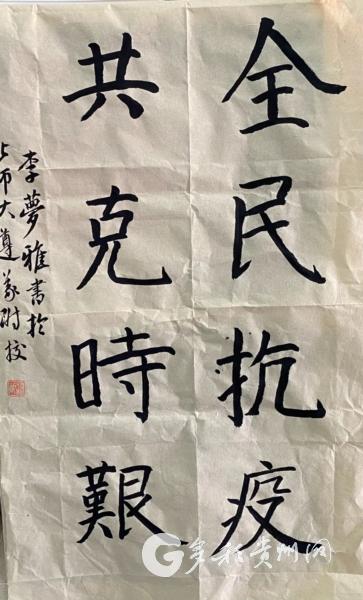 全民抗疫
共克時艱
李夢雅書於
上师大遵义附校
多彩贵州网